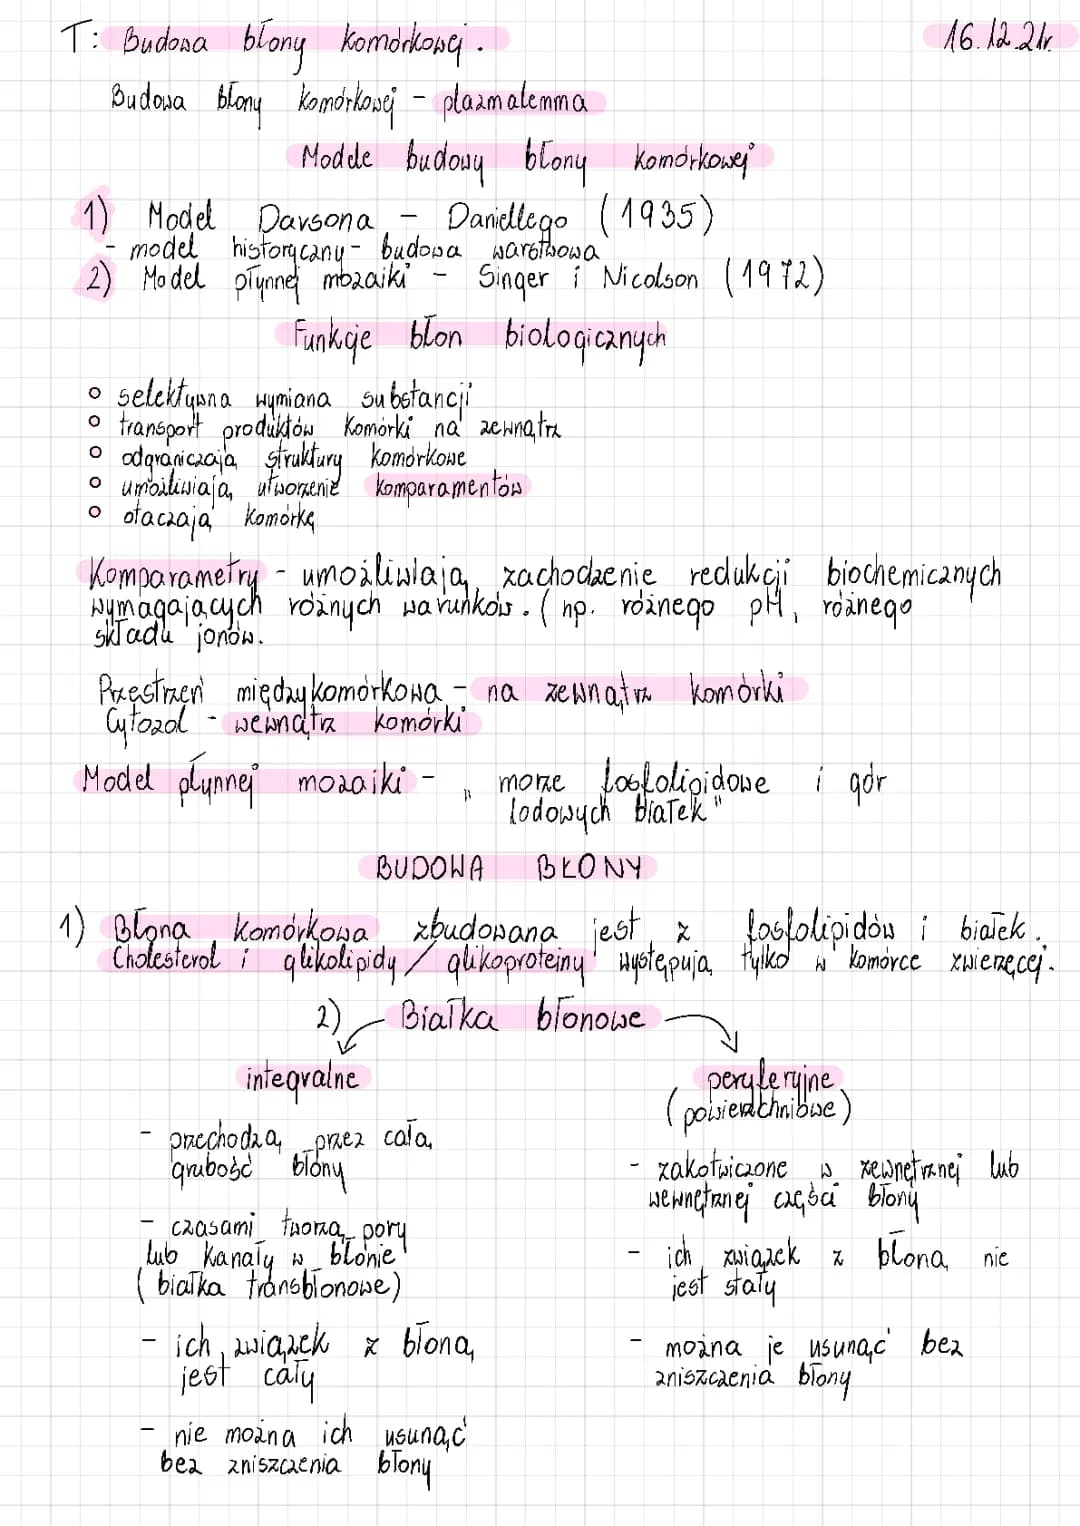 T: Budowa błony komórkowej.
16.12.21r.
Budowa błony komórkowej - plazmalemma
Modele budowy błony komórkowej
1) Model Davsona - Daniellego (1935)
- model historyczny - budowa warstwowa
2) Model płynnej mozaiki - Singer i Nicolson (1972)
Funkcje błon biologicznych
○ selektywna wymiana substancji
○ transport produktów komórki na zewnątrz
○ odgraniczają struktury komórkowe
○ umożliwiają utworzenie komparamentów
○ otaczają komórkę
Komparametry - umożliwiają zachodzenie redukcji biochemicznych
wymagających różnych warunków. (np. różnego pH, różnego
składu jonów.
Przestrzeń międzykomórkowa - na zewnątrz komórki
Cytozol - wewnątrz komórki
Model płynnej mozaiki - „ morze fosfolipidowe i gór
lodowych białek"
BUDOWA BŁONY
1) Błona komórkowa zbudowana jest z fosfolipidów i białek.
Cholesterol i glikolipidy / glikoproteiny występują tylko w komórce zwierzęcej.
2) Białka błonowe
integralne
- przechodzą przez całą
grubość błony
- czasami tworzą pory
lub kanały w błonie
(białka transbłonowe)
- ich związek z błoną
jest cały
- nie można ich usunąć
bez zniszczenia błony
peryferyjne
(powierzchniowe)
- zakotwiczone w zewnętrznej lub
wewnętrznej części błony
- ich związek z błoną nie
jest stały
- można je usunąć bez
zniszczenia błony